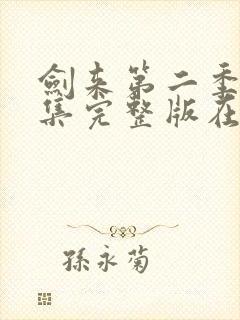 劍來第二季
集完整版在
孫永菊